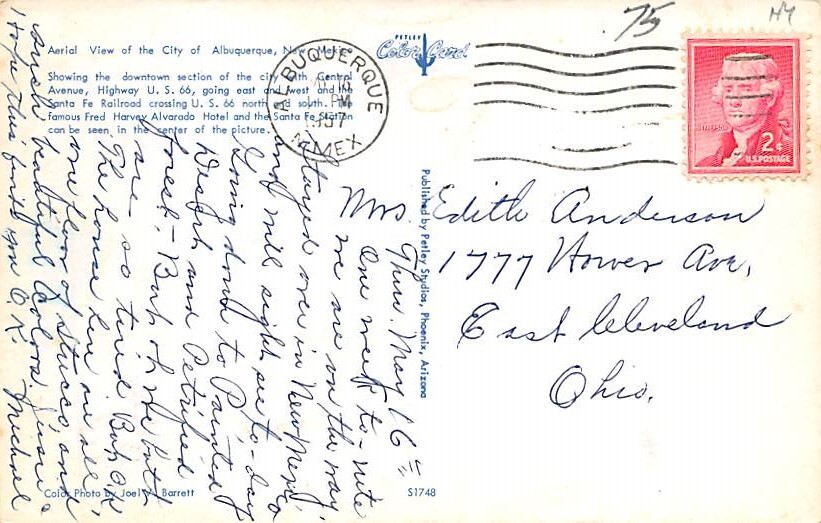 Aerial View of the City of Albuquerque, New Mexico
Showing the downtown section of the city with Central
Avenue, Highway U. S. 66, going east and west and the
Santa Fe Railroad crossing U. S. 66 north and south. The
famous Fred Harvey Alvarado Hotel and the Santa Fe Station
can be seen in the center of the picture.
PETLEY
Color Card
ALBUQUERQUE
PM
1957
N. MEX
75
NY
JEFFERSON
2¢
U.S. POSTAGE
Thur. May 16th
One week to-nite
we are on the way.
Stayed over in New Mexico
and will sight see to-day
Going down to Painted
Desert and Petrified
forest - But oh we both
are so tired But O.K.
The houses here are all
one floor of stucco, and
such beautiful Colors.
Hope this finds you O.K. Michael
Published by Petley Studios, Phoenix, Arizona
Mrs. Edith Anderson
1777 Hower Ave,
East Cleveland
Ohio.
Color Photo by Joel W. Barrett
S1748